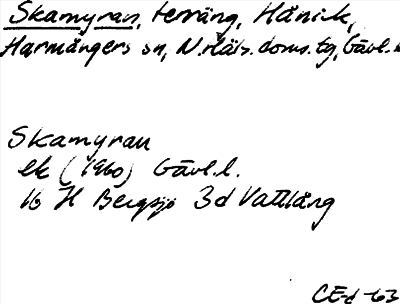 Skamyran, terräng, Hånick,
Harmångers sn, N. Häls. doms. tg, Gävl. l
Skamyran
ek (1960) Gävl. l.
16 H Bergsjö 3d Vattlång
CE-d -63